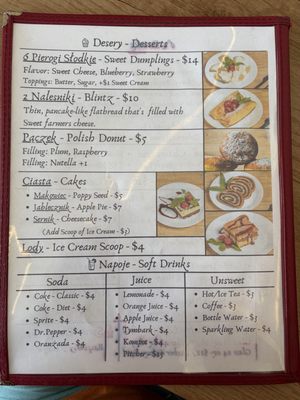 Desery - Desserts
6 Pierogi Słodkie - Sweet Dumplings - $14
Flavor: Sweet Cheese, Blueberry, Strawberry
Toppings: Butter, Sugar, +$1 Sweet Cream
2 Nalesniki - Blintz - $10
Thin, pancake-like flatbread that's filled with
Sweet farmers cheese.
Paczek - Polish Donut - $5
Filling: Plum, Raspberry
Filling: Nutella +1
Ciasta - Cakes
• Makowiec - Poppy Seed - $5
• Jablecznik - Apple Pie - $7
• Sernik - Cheesecake - $7
(Add Scoop of Ice Cream - $3)
Lody - Ice Cream Scoop - $4
Napoje - Soft Drinks
Soda
• Coke - Classic - $4
• Coke - Diet - $4
• Sprite - $4
• Dr.Pepper - $4
• Oranzada - $4
Juice
• Lemonade - $4
• Orange Juice - $4
• Apple Juice - $4
• Tymbark - $4
• Kompot - $4
• Pitcher - $15
Unsweet
• Hot/Ice Tea - $3
• Coffee - $3
• Bottle Water - $3
• Sparkling Water - $4